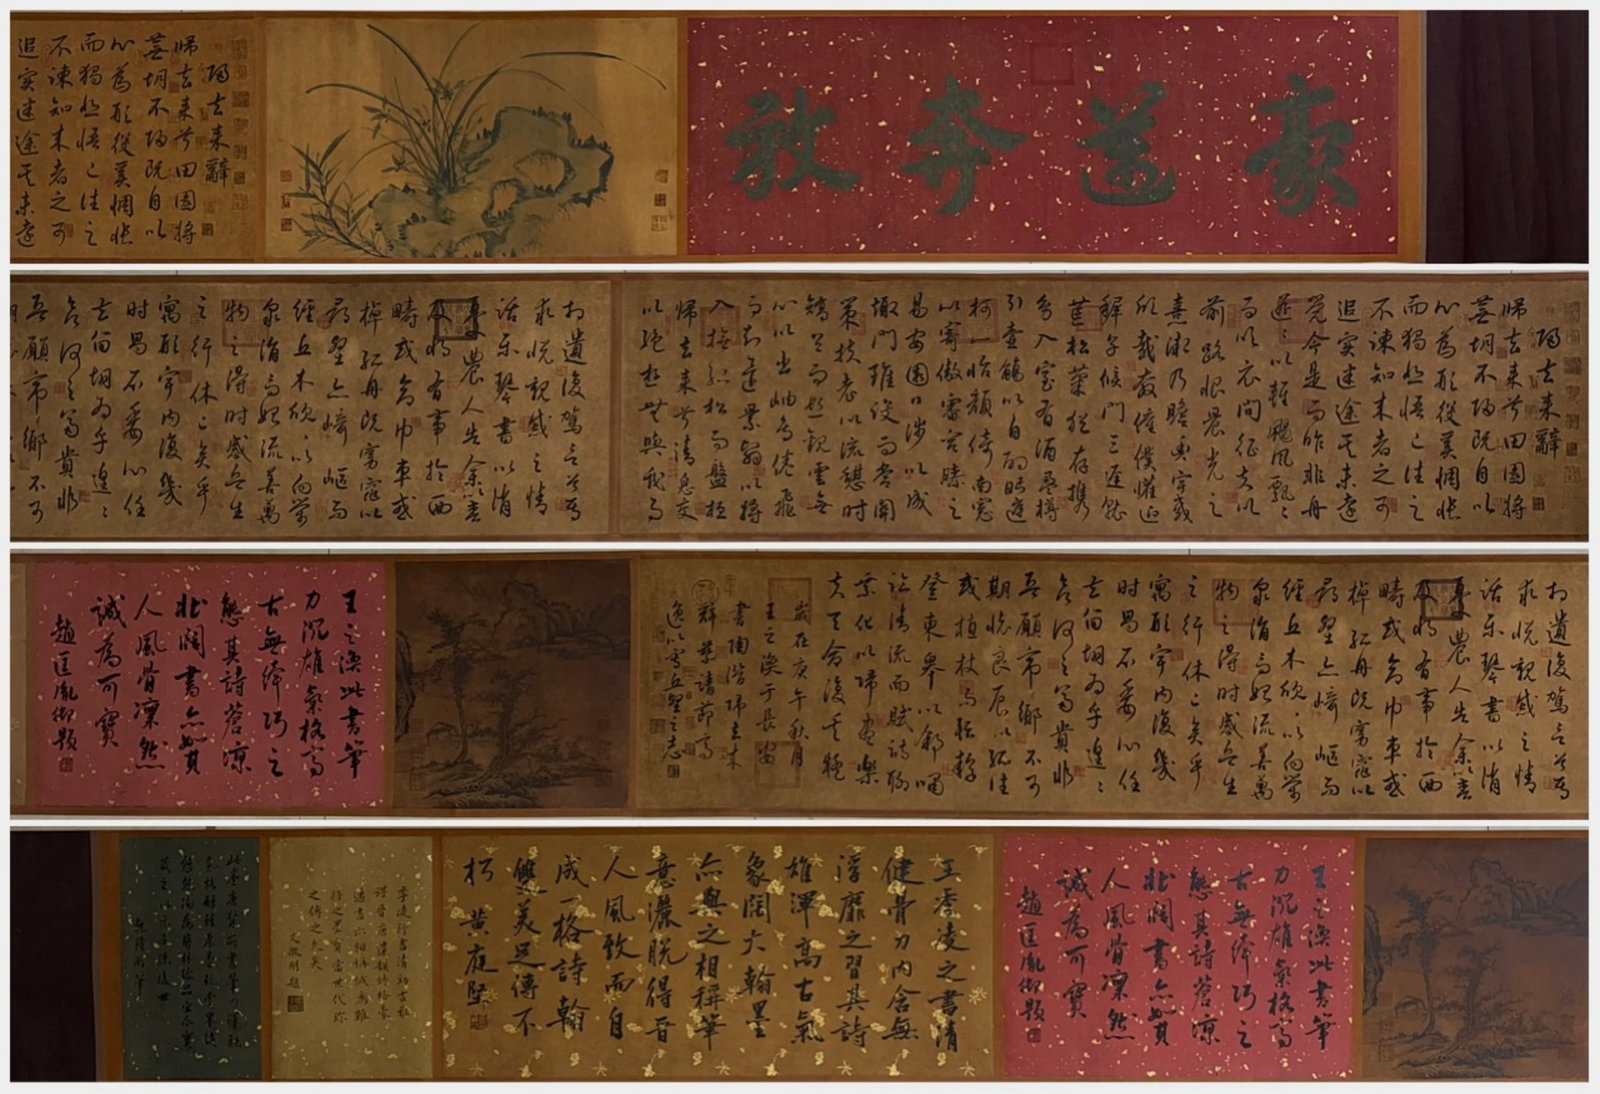 豪邁奔放
歸去來辭
歸去來兮田園將
蕪胡不歸既自以
心為形役奚惆悵
而獨悲悟已往之
不諫知來者之可
追實迷途其未遠
歸去來辭
歸去來兮田園將
蕪胡不歸既自以
心為形役奚惆悵
而獨悲悟已往之
不諫知來者之可
追實迷途其未遠
覺今是而昨非舟
遙遙以輕颺風飄飄
而吹衣問征夫以
前路恨晨光之
熹微乃瞻衡宇載
欣載奔僮僕懽迎
稚子候門三徑就
荒松菊猶存攜
幼入室有酒盈樽
引壺觴以自酌眄庭
柯以怡顏倚南窗
以寄傲審容膝之
易安園日涉以成
趣門雖設而常關
策扶老以流憩時
矯首而遐觀雲無
心以出岫鳥倦飛
而知還景翳以將
入撫孤松而盤桓
歸去來兮請息交
以絕遊世與我而
相遺復駕言兮焉
求悅親戚之情
話樂琴書以消
憂農人告余以春
及將有事於西
疇或命巾車或
棹孤舟既窈窕以
尋壑亦崎嶇而
經丘木欣欣以向榮
泉涓而始流善萬
物之得時感吾生
之行休已矣乎
寓形宇內復幾
時曷不委心任
去留胡為乎遑遑
欲何之富貴非
吾願帝鄉不可
相遺復駕言兮焉
求悅親戚之情
話樂琴書以消
憂農人告余以春
及將有事於西
疇或命巾車或
棹孤舟既窈窕以
尋壑亦崎嶇而
經丘木欣欣以向榮
泉涓而始流善萬
物之得時感吾生
之行休已矣乎
寓形宇內復幾
時曷不委心任
去留胡為乎遑遑
欲何之富貴非
吾願帝鄉不可
期懷良辰以孤往
或植杖而耘耔
登東皋以舒嘯
臨清流而賦詩聊
乘化以歸盡樂
夫天命復奚疑
歲在庚午秋月
王之渙于長安
書陶潛歸去來
辭
逸以寄丘壑之志
王之渙此書筆
力沉雄氣格高
古無纖巧之
態其詩蒼涼
壯闊書亦如其
人風骨凜然
誠為可寶
趙匡胤御題
王之渙此書筆
力沉雄氣格高
古無纖巧之
態其詩蒼涼
壯闊書亦如其
人風骨凜然
誠為可寶
趙匡胤御題
王季凌之書清
健骨力內含無
浮靡之習其詩
雄渾高古氣
象闊大翰墨
亦與之相稱筆
意灑脫得晉
人風致而自
成一格詩翰
雙美足傳不
朽 黄庭堅
季凌行書清勁古雅
得晉唐遺韻詩格豪
邁書亦相稱誠為難
得之墨寶當世代珍
之傳之久矣
文徵明題
此卷唐賢所書筆力渾